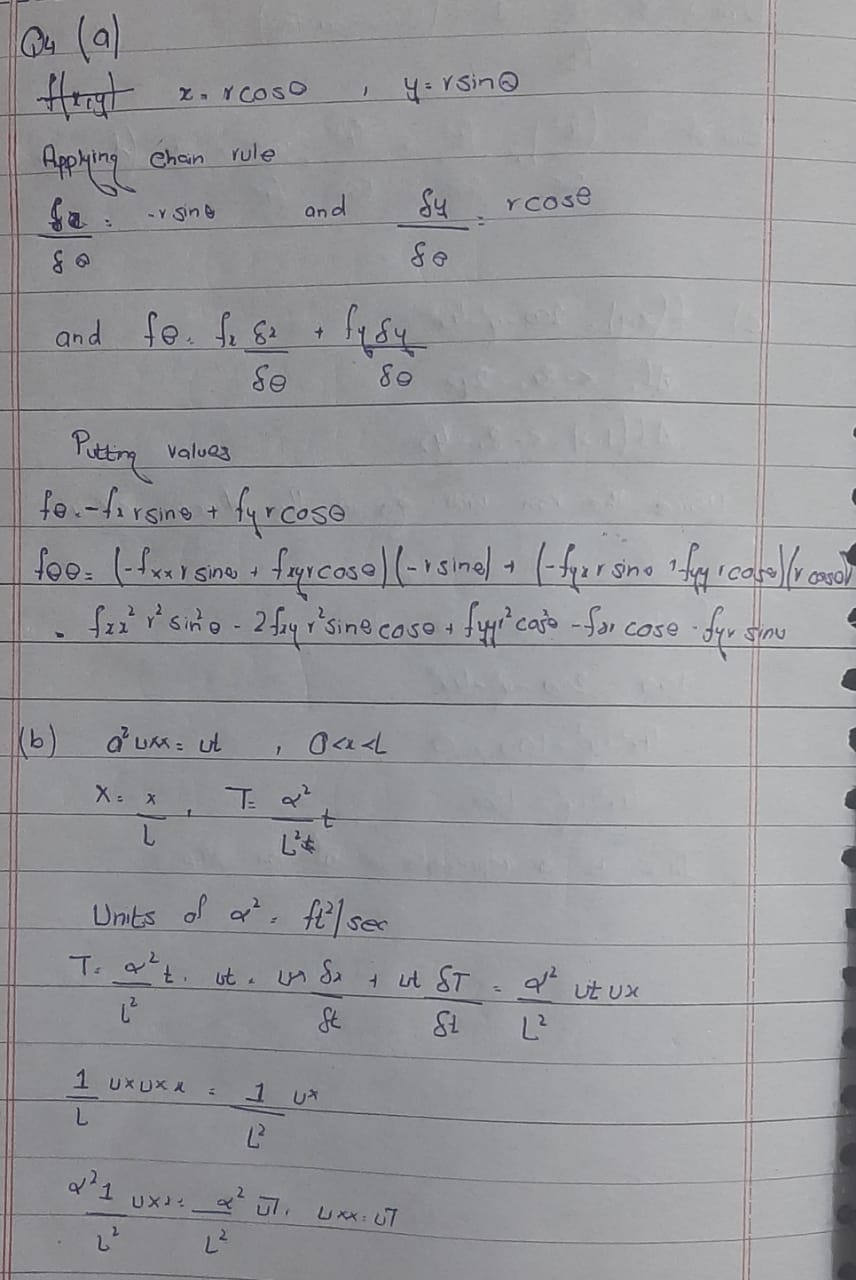 Q4 (a)
x = rcosθ , y = rsinθ
Applying chain rule
δx/δθ = -r sinθ and δy/δθ = rcosθ
and fθ = fx δx/δθ + fy δy/δθ
Putting values
fθ = -fx rsinθ + fy rcosθ
fθθ = (-fxx r sinθ + fxy rcosθ)(-rsinθ) + (-fyx r sinθ + fyy rcosθ)(r cosθ)
= fxx² r² sin²θ - 2fxy r² sinθ cosθ + fyy r² cos²θ - fxr cosθ - fyr sinθ
(b) a² uxx = ut , 0<x<L
X = x/L , T = α²/L² t
Units of α² = ft²/sec
T = α²/L² t. ut = ux δx/δt + ut δT/δt = α²/L² ut ux
1/L ux uxx = 1/L² ux
α² 1/L² uxx = α²/L² uT, uxx = uT